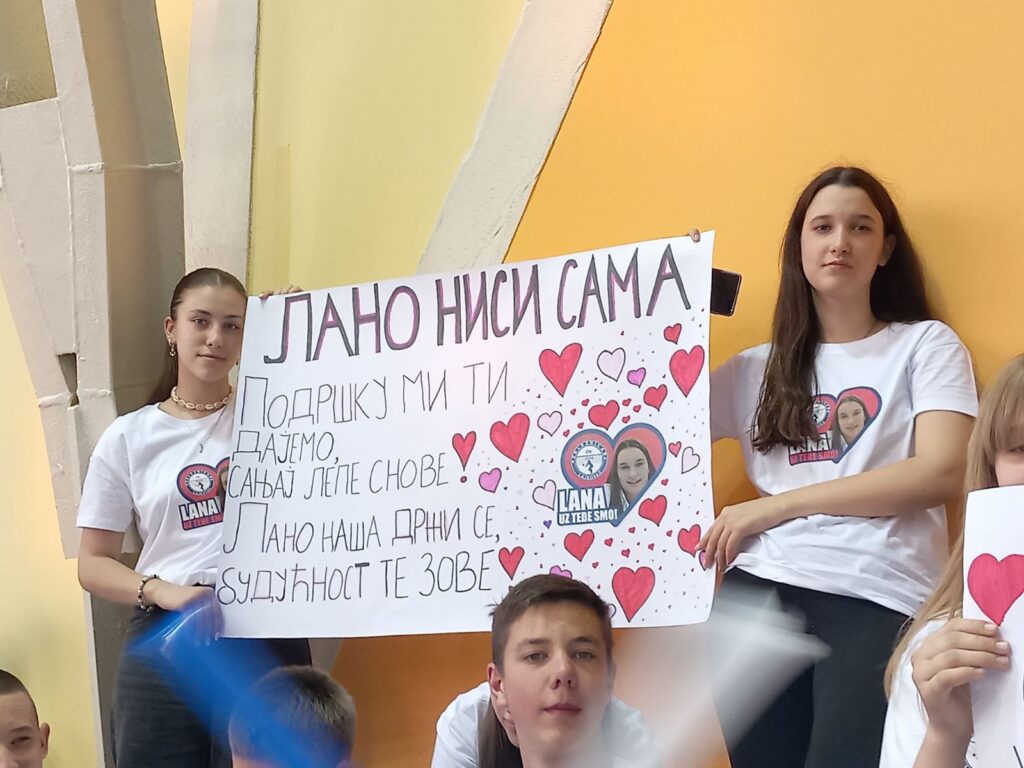 ЛАНО НИСИ САМА
ПОДРШКУ МИ ТИ
ДАЈЕМО,
САЊАЈ ЛЕПЕ СНОВЕ !
ЛАНО НАША ДРЖИ СЕ,
БУДУЋНОСТ ТЕ ЗОВЕ
LANA
UZ TEBE SMO!
LANA
UZ TEBE SMO!
LANA
UZ TEBE SMO!